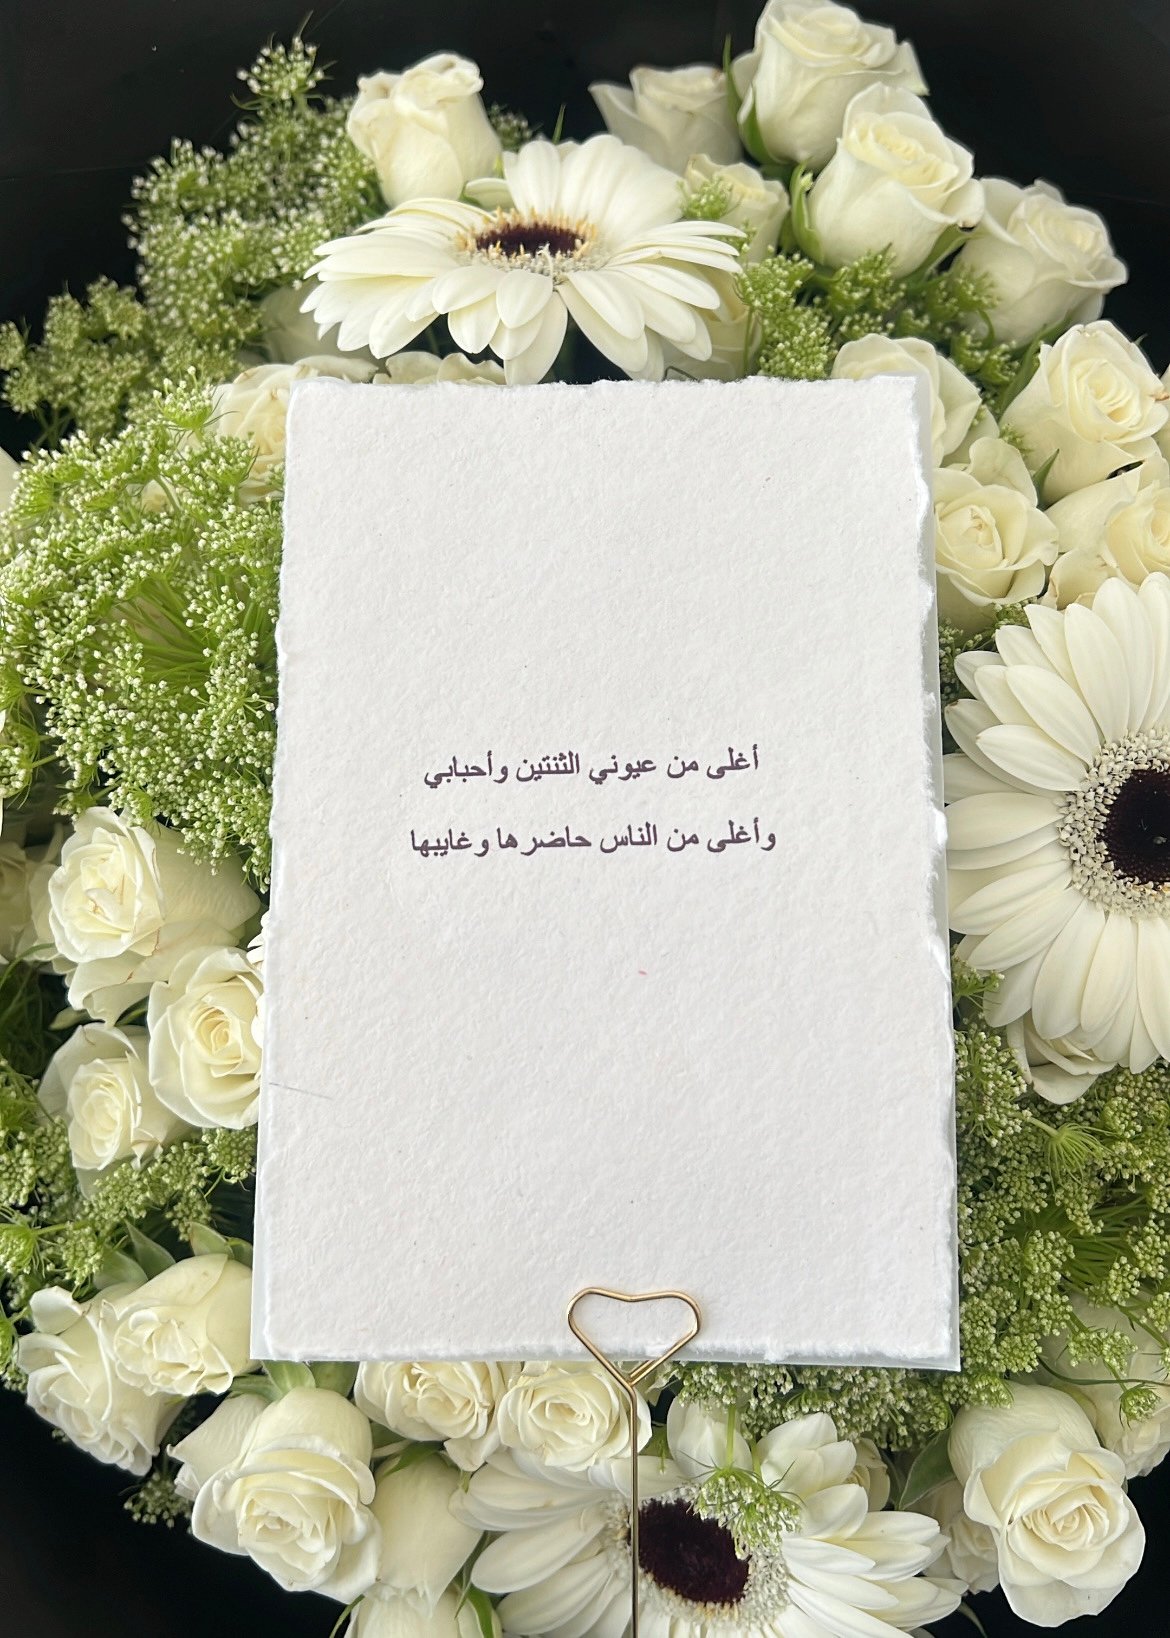 أغلى من عيوني الثنتين وأحبابي
وأغلى من الناس حاضرها وغايبها